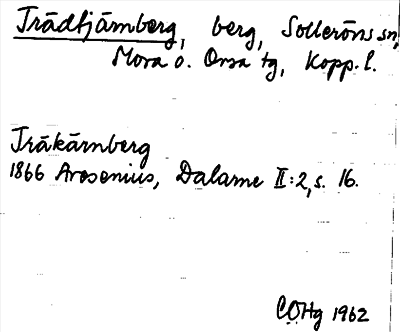 Trädtjärnberg, berg, Solleröns sn,
Mora o. Orsa tg, Kopp. l.
Träkärnberg
1866 Arosenius, Dalarne II:2, s. 16.
COHg 1962